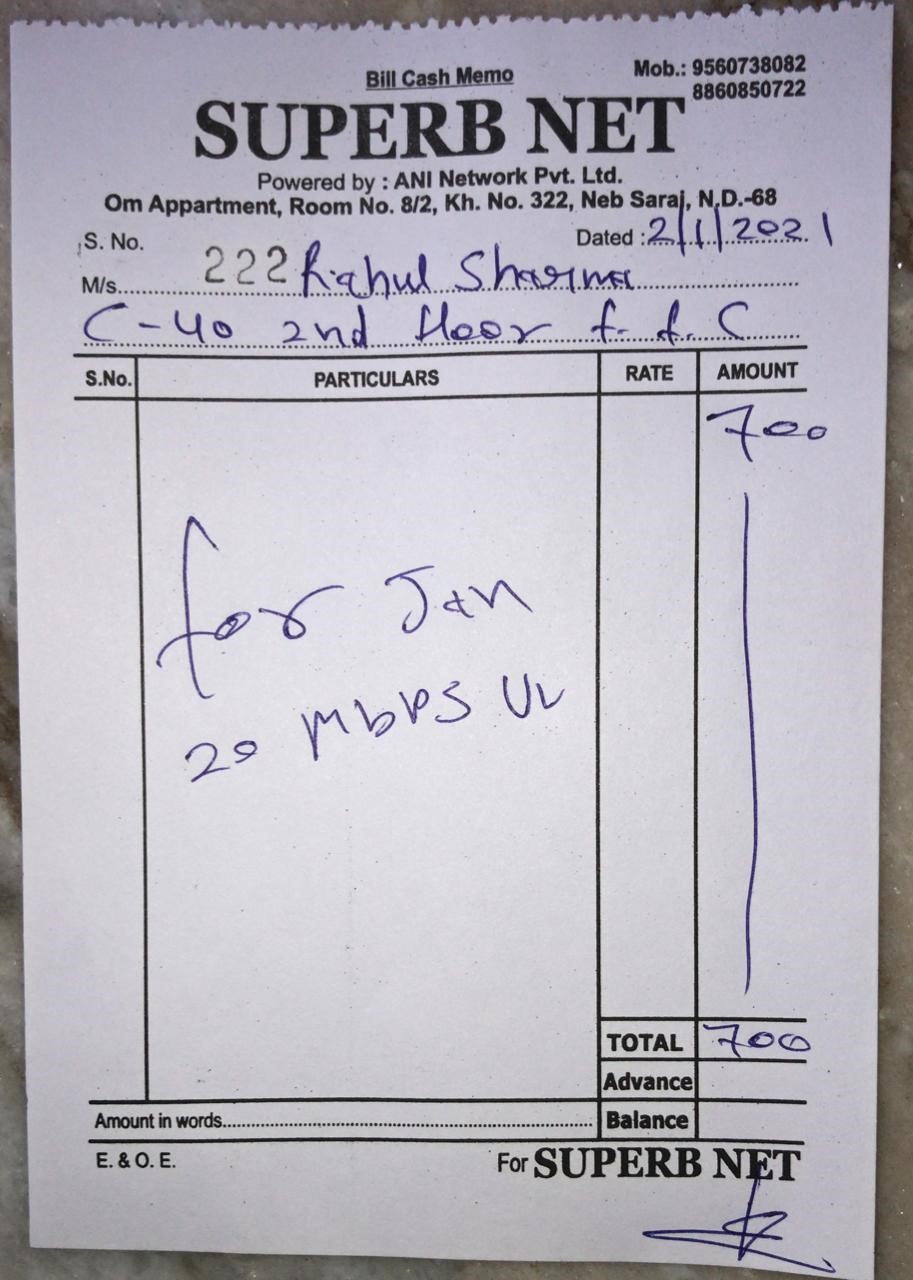 Bill Cash Memo
Mob.: 9560738082
8860850722
SUPERB NET
Powered by : ANI Network Pvt. Ltd.
Om Appartment, Room No. 8/2, Kh. No. 322, Neb Saraj, N.D.-68
S. No. 222
Dated : 2/1/2021
M/s. Rahul Sharma
C-40 2nd floor f. f. C
S.No. PARTICULARS RATE AMOUNT
700
for Jan
20 Mbps UL
TOTAL 700
Advance
Amount in words Balance
E. & O. E.
For SUPERB NET